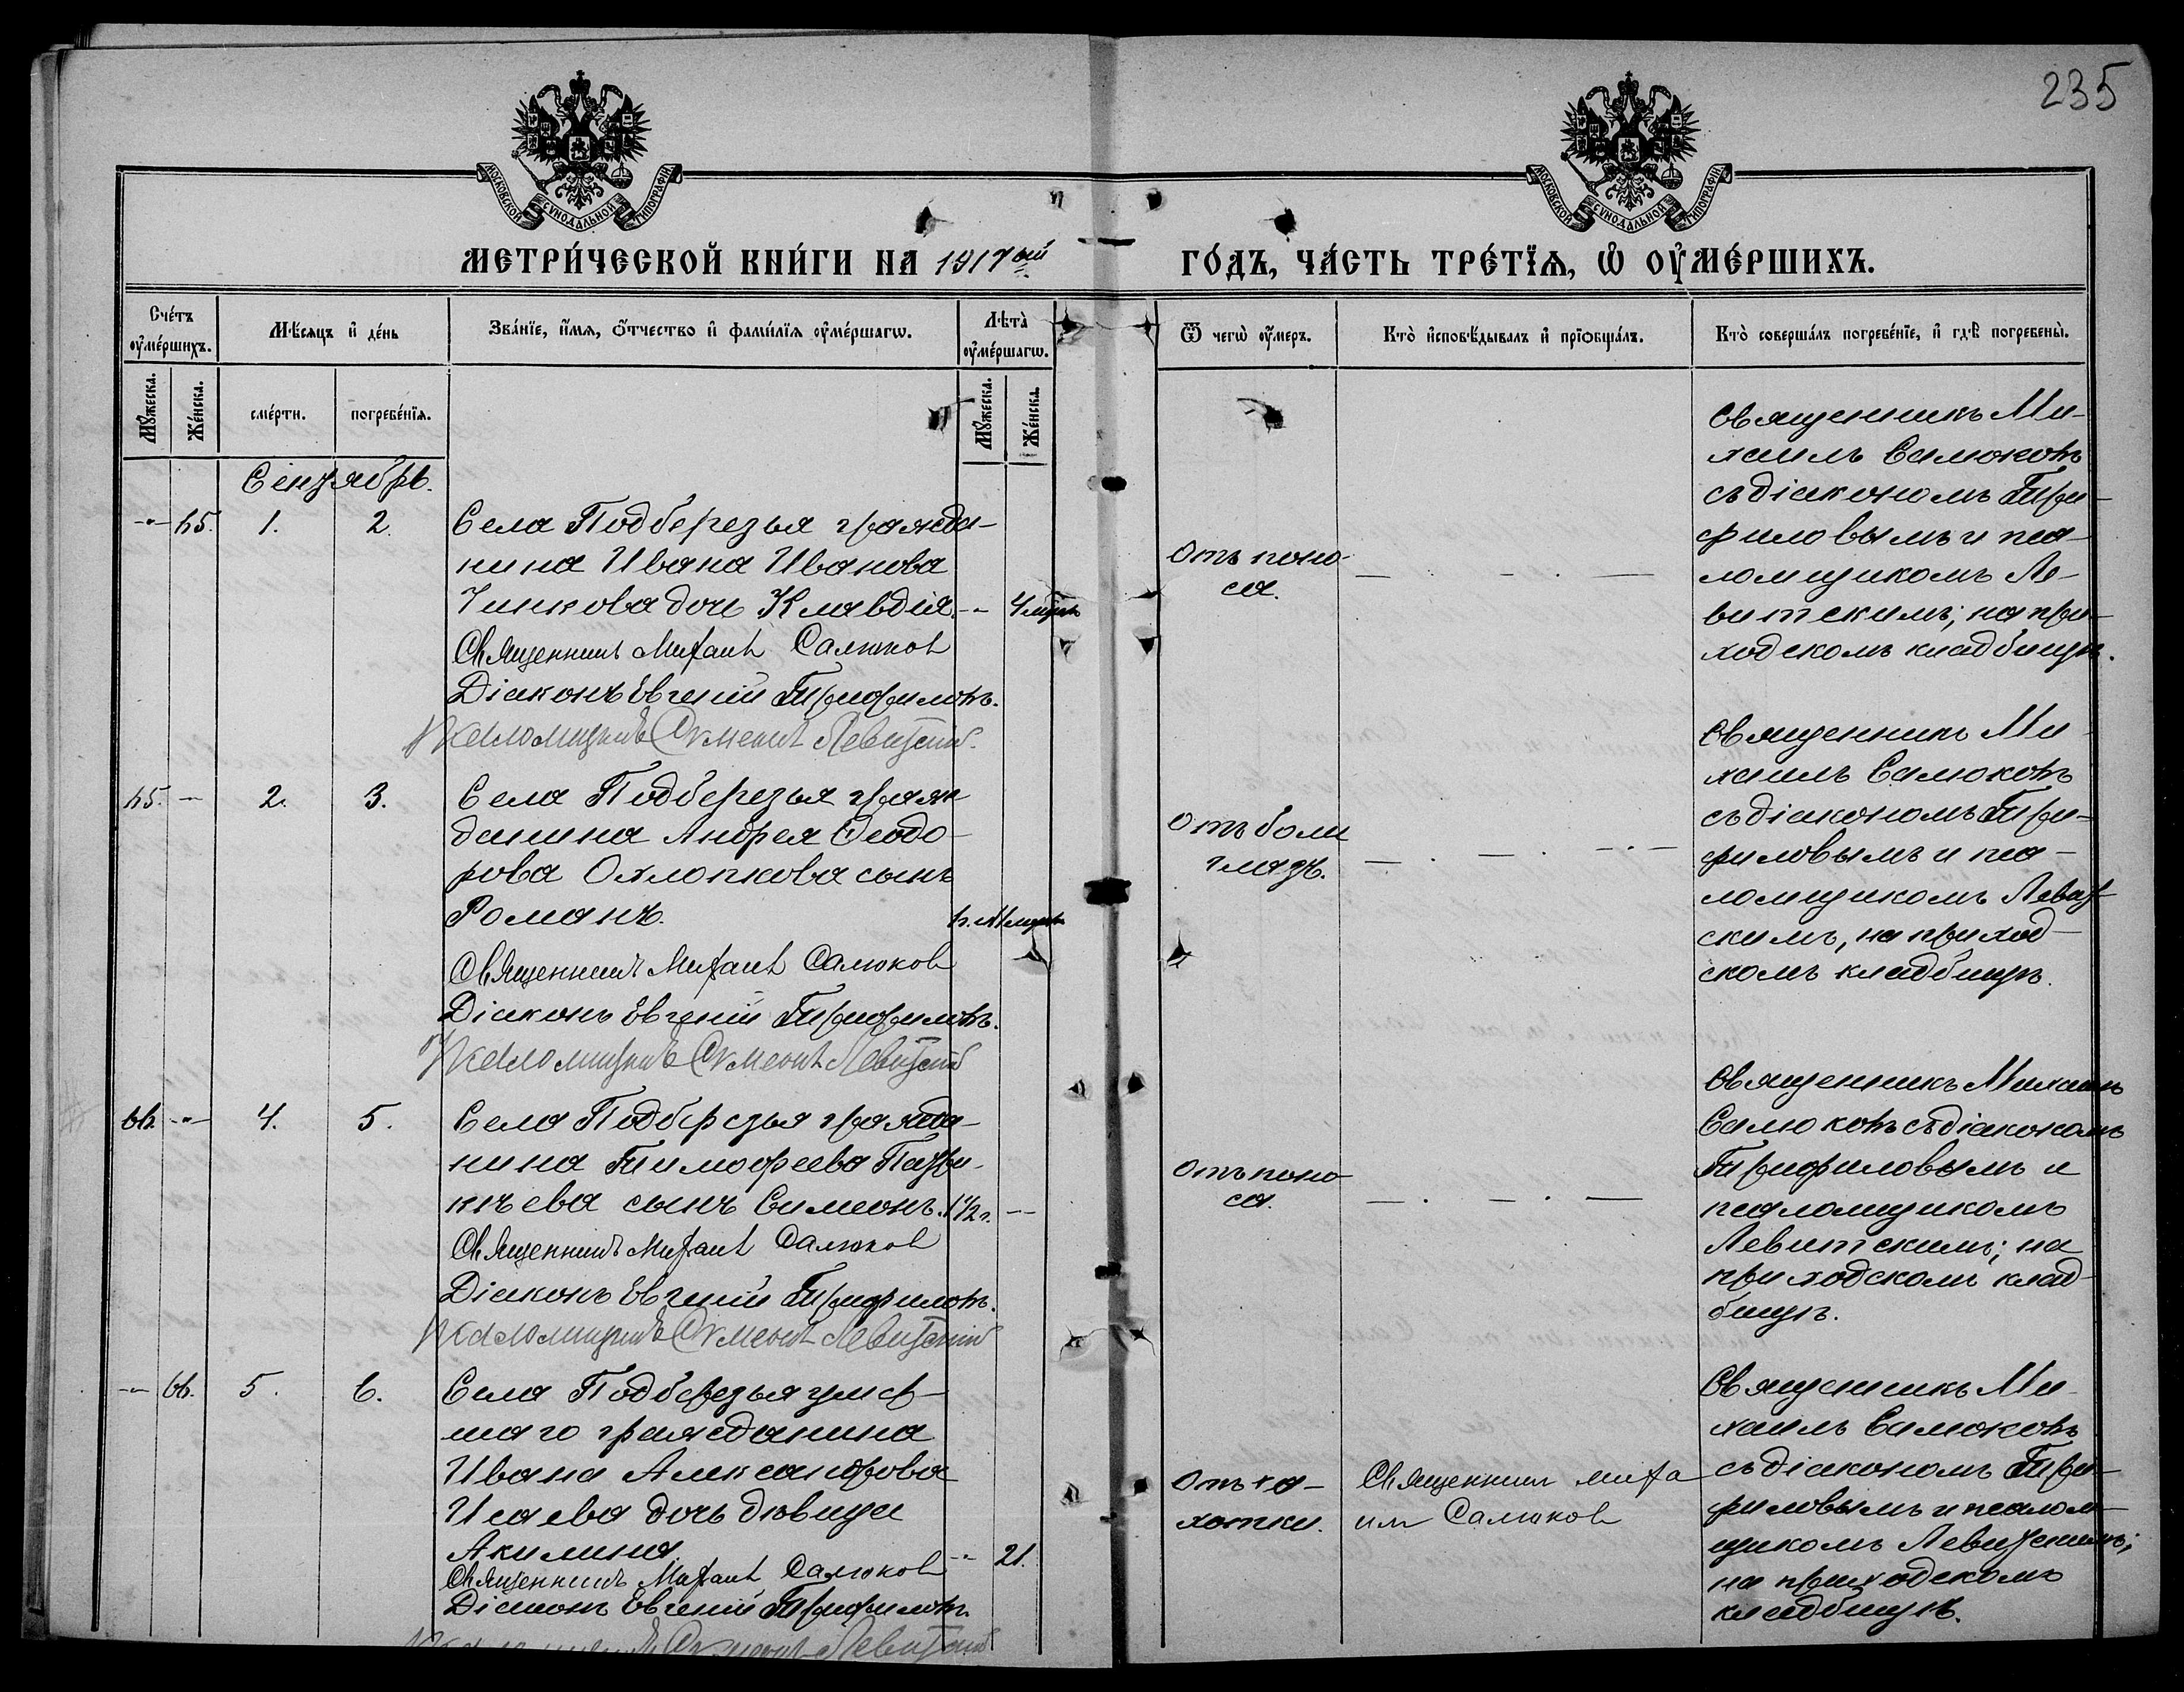 235
МОСКОВСКОЙ СѴНОДАЛЬНОЙ ТИПОГРАФІИ
МОСКОВСКОЙ СѴНОДАЛЬНОЙ ТИПОГРАФІИ
МЕТРИ́ЧЕСКОЙ КНИ́ГИ НА 1917ый ГО́ДЪ, ЧА́СТЬ ТРЕ́ТЇѦ, Ѡ ОУ҆МЕ́РШИХЪ.
Сче́тъ оу҆ме́ршихъ.
Мѣ́сяцъ и҆ де́нь
Зва́нїе, и҆́мѧ, ѻ҆́тчество и҆ фами́лїѧ оу҆ме́ршагѡ.
Лѣ́та̀ оу҆ме́ршагѡ.
Ѿ чегѡ̀ оу҆́меръ.
Кто̀ и҆сповѣ́дывалъ и҆ прїѡбща́лъ.
Кто̀ соверша́лъ погребе́нїе, и҆ гдѣ̀ погребены̀.
Мꙋ́жеска.
Же́нска.
сме́рти.
погребе́нїѧ.
Мꙋ́жеска.
Же́нска.
Сентябрь.
-"- 65. 1. 2.
Села Подберезья гражда-
нина Ивана Иванова
Чинкова дочь Клавдія. -" 4 мѣсяц
Священникъ Михаилъ Салюков
Діаконъ Евгеній Трифиловъ.
Псаломщикъ Сѵмеонъ Левитскій.
Отъ поно-
са.
Священникъ Ми-
хаилъ Салюковъ
съ діакономъ Три-
филовымъ и пса-
ломщикомъ Ле-
витскимъ; на при-
ходскомъ кладбищѣ.
65. - 2. 3.
Села Подберезья граж-
данина Андрея Ѳеодо-
рова Охлопкова сынъ
Романъ.
Священникъ Михаилъ Салюков
Діаконъ Евгеній Трифиловъ.
Псаломщикъ Сѵмеонъ Левитскій
Отъ боли
глазъ.
Священникъ Ми-
хаилъ Салюковъ
съ діакономъ Три-
филовымъ и пса-
ломщикомъ Левит-
скимъ, на приход-
скомъ кладбищѣ.
66. -"- 4. 5.
Села Подберезья гражда-
нина Тимофеева Патри-
кѣева сынъ Симеонъ. 1 1/2 г. -
Священникъ Михаилъ Салюков
Діаконъ Евгеній Трифиловъ.
Псаломщикъ Сѵмеонъ Левитскій
Отъ поно-
са.
Священникъ Михаилъ
Салюковъ съ діакономъ
Трифиловымъ и
псаломщикомъ
Левитскимъ; на
приходскомъ клад-
бищѣ.
-"- 66. 5. 6.
Села Подберезья умер-
шаго гражданина
Ивана Александрова
Исаева дочь дѣвица
Акилина. -" 21.
Священникъ Михаилъ Салюков
Діаконъ Евгеній Трифиловъ.
Псаломщикъ Сѵмеонъ Левитскій
Отъ ча-
хотки.
Священник Миха
ил Салюков
Священникъ Ми-
хаилъ Салюковъ
съ діакономъ Три-
филовымъ и псалом-
щикомъ Левитскимъ;
на приходскомъ
кладбищѣ.